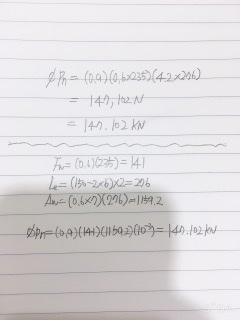 ØPn = (0.9)(0.6x235)(4.2x276)
= 147,102N
= 147.102 kN
Fw = (0.6)(235) = 141
Le = (150-2x6)x2 = 276
Aw = (0.6x7)(276) = 1159.2
ØPn = (0.9)(141)(1159.2)(10⁻³) = 147.102 kN